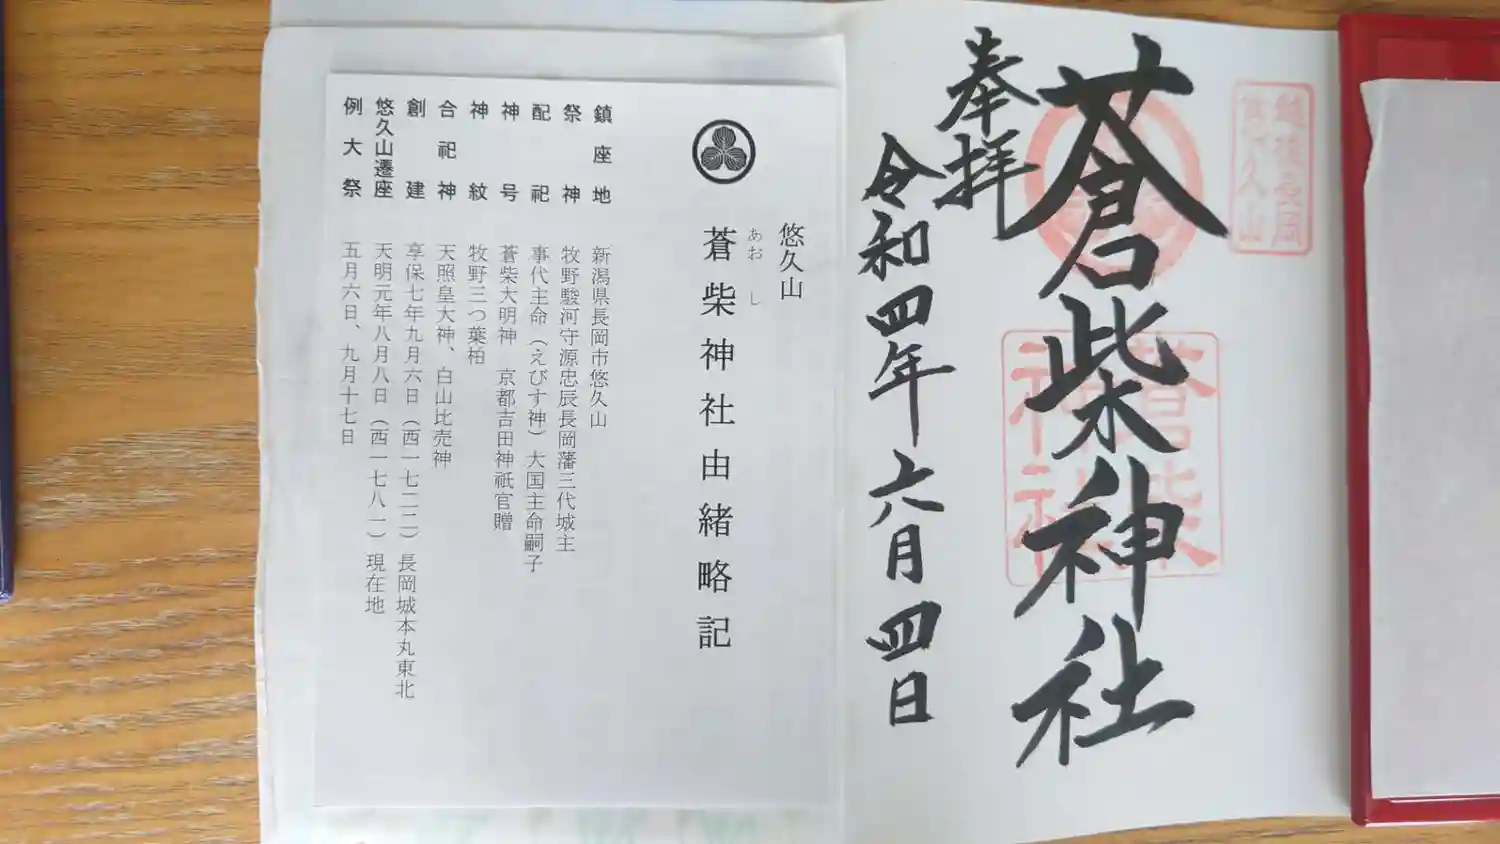 越後長岡
悠久山
蒼柴神社
奉拝
令和四年六月四日
蒼柴
神社
悠久山
あおし
蒼柴神社由緒略記
鎮座地 新潟県長岡市悠久山
祭神 牧野駿河守源忠辰長岡藩三代城主
配祀 事代主命（えびす神）大国主命嗣子
神号 蒼柴大明神 京都吉田神祇官贈
神紋 牧野三つ葉柏
合祀神 天照皇大神、白山比売神
創建 享保七年九月六日（西一七二二）長岡城本丸東北
悠久山遷座 天明元年八月八日（西一七八一）現在地
例大祭 五月六日、九月十七日